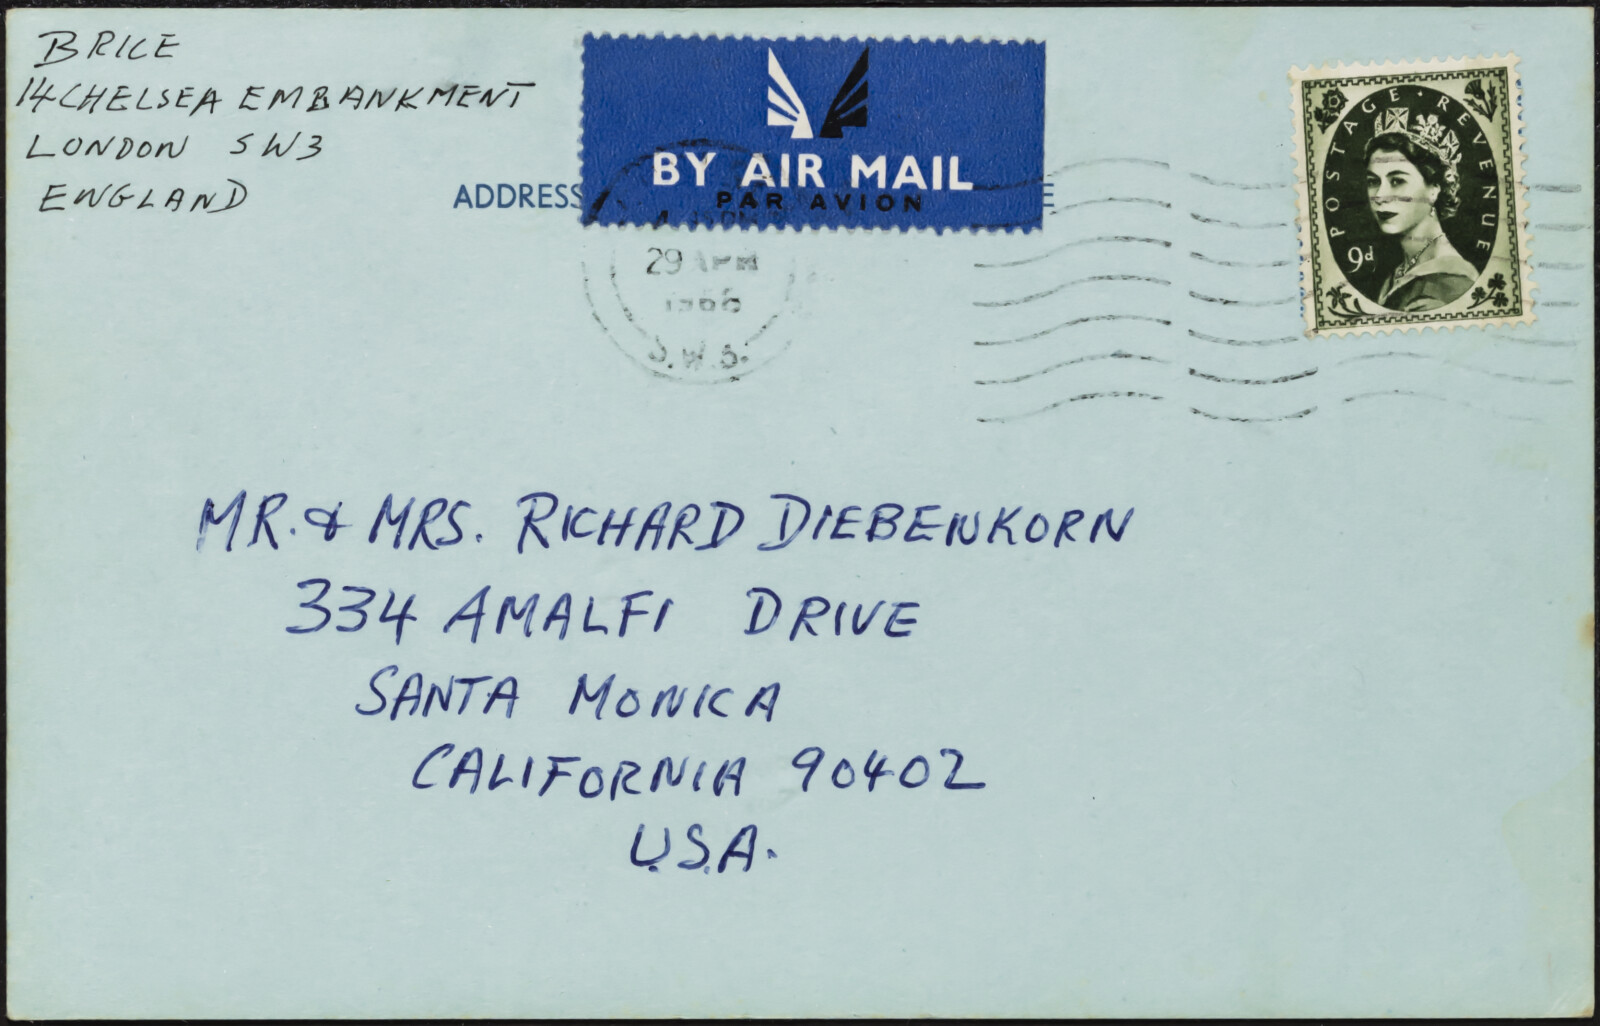 BRICE
14 CHELSEA EMBANKMENT
LONDON SW3
ENGLAND
ADDRESS
BY AIR MAIL
PAR AVION
E
29 APR
1966
S.W.
POSTAGE · REVENUE
9d
MR. & MRS. RICHARD DIEBENKORN
334 AMALFI DRIVE
SANTA MONICA
CALIFORNIA 90402
U.S.A.